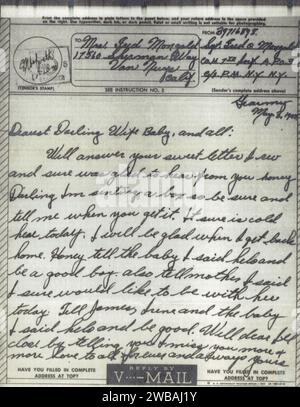 Print the complete address in plain letters in the panel below, and your return address in the space provided
on the right. Use typewriter, dark ink, or dark pencil. Faint or small writing is not suitable for photographing.
To FROM
(CENSOR'S STAMP)
SEE INSTRUCTION NO. 2
(Sender's complete address above)
Germany
Dearest Darling Wife Baby, and all:
Well answer your sweet letter I
and sure was glad to hear from you honey
Darling, I'm sending a box so be sure and
tell me when you get it. It sure is cold
here today. I will be glad when I get back
home. Honey tell the baby I said hello and
be a good boy. also tell mother I said
I sure would like to be with her
today. Tell James, June and the baby
I said hello and be good. Well dear I'll
close by telling you I miss you more &
more love to all forever and always yours
HAVE YOU FILLED IN COMPLETE
ADDRESS AT TOP?
REPLY BY
V···—MAIL
HAVE YOU FILLED IN COMPLETE
ADDRESS AT TOP?
alamy
Image ID: 2WBAJ1Y
www.alamy.com